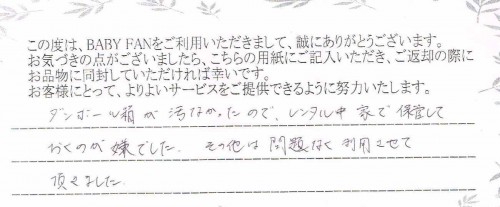 この度は、BABY FANをご利用いただきまして、誠にありがとうございます。
お気づきの点がございましたら、こちらの用紙にご記入いただき、ご返却の際に
お品物に同封していただければ幸いです。
お客様にとって、よりよいサービスをご提供できるように努力いたします。
ダンボール箱が汚なかったので、レンタル中家で保管して
おくのが嫌でした。その他は問題なく利用させて
頂きました。